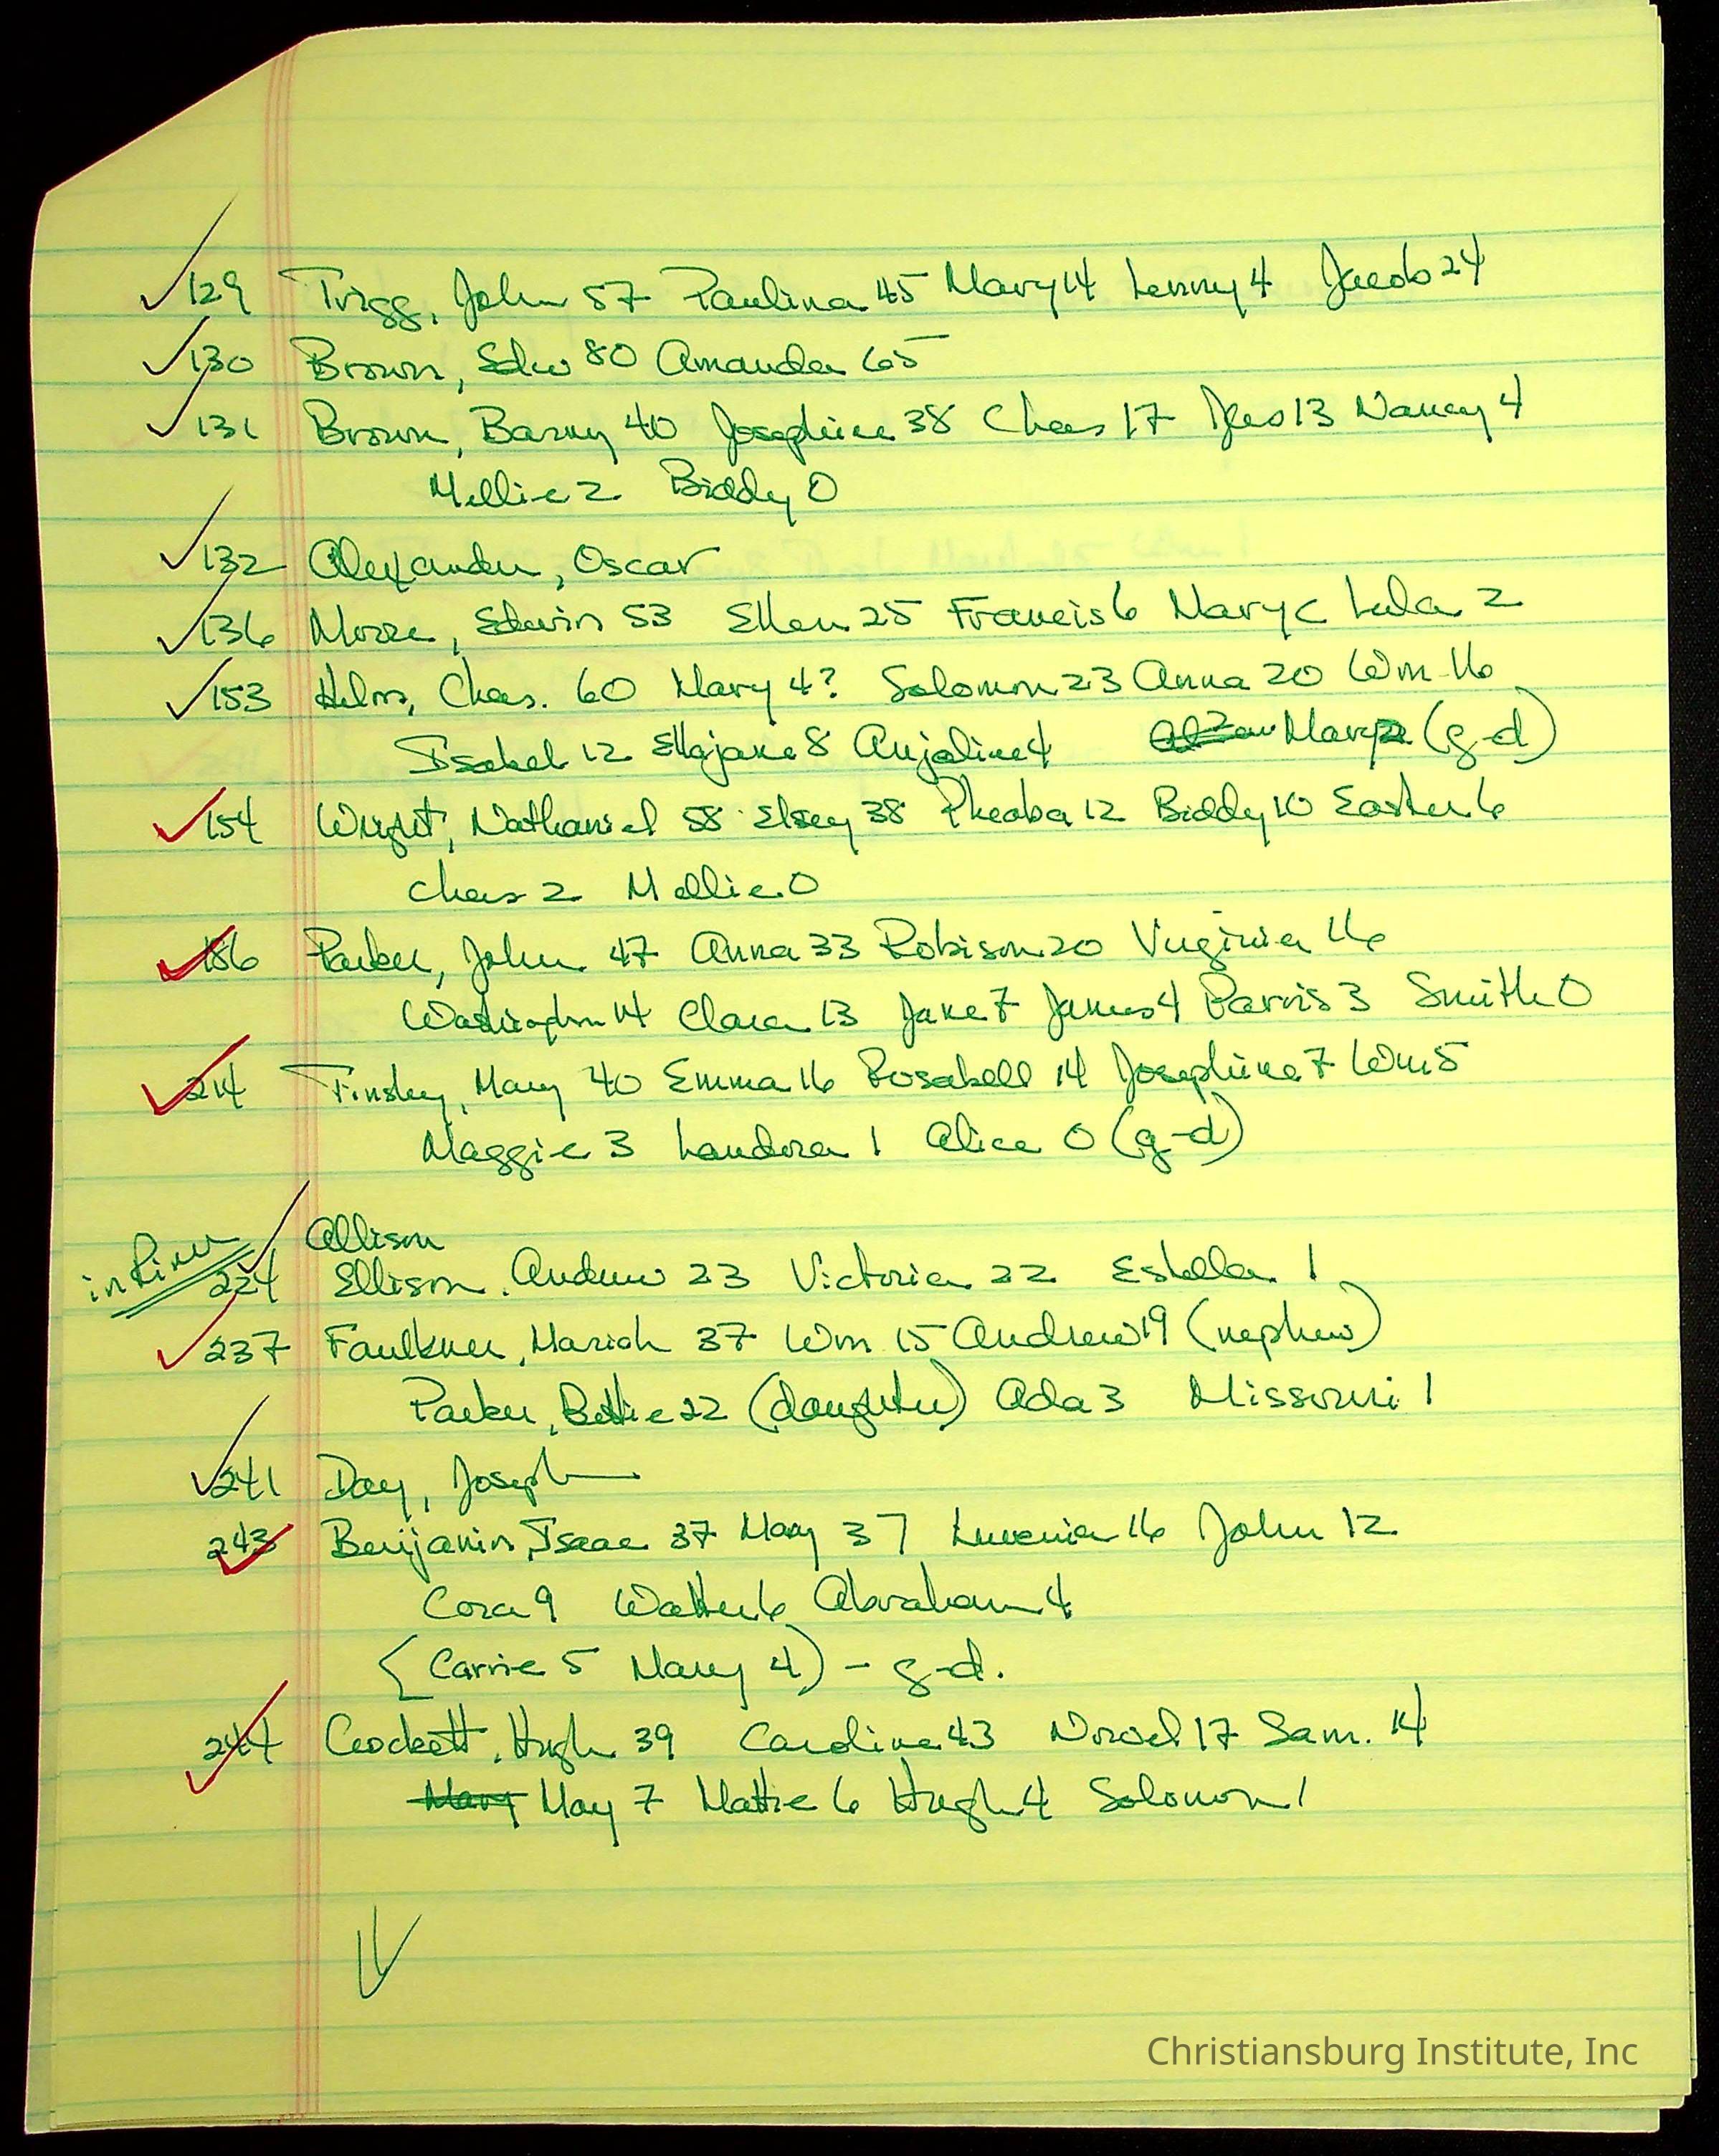 129 Trigg, John 57 Paulina 45 Mary 14 Lenny 4 Jacob 24
130 Brown, Edw 80 Amanda 65
131 Brown, Barny 40 Josephine 38 Chas 17 Geo 13 Nancy 4
Mellie 2 Biddy 0
132 Alexander, Oscar
136 Moore, Edwin 53 Ellen 25 Francis 6 Mary C Lula 2
153 Helms, Chas. 60 Mary 4? Solomon 23 Anna 20 Wm 16
Isabel 12 Ellajane 8 Anjaline 4 Mary 2 (g-d)
154 Wright, Nathaniel 58 Elsey 38 Pheoba 12 Biddy 10 Easter 6
Chas 2 Mollie 0
186 Parker, John 47 Anna 33 Robison 20 Virginia 16
Washington 14 Clara 13 Jake 7 James 4 Parris 3 Smith 0
214 Tinsley, Mary 40 Emma 16 Rosabell 14 Josephine 7 Wm 5
Maggie 3 Landora 1 Alice 0 (g-d)
Allison
in Riner 224 Ellison, Andrew 23 Victoria 22 Estella 1
237 Faulkner, Mariah 37 Wm 15 Andrew 19 (nephew)
Parker, Bettie 22 (daughter) Ada 3 Missouri 1
241 Day, Joseph
243 Benjamin, Isaac 37 Mary 37 Luvenia 16 John 12
Cora 9 Walter 6 Abraham 4
{Carrie 5 Mary 4) - g-d.
244 Crockett, Hugh 39 Caroline 43 Novel 17 Sam. 14
Mary May 7 Mattie 6 Hugh 4 Solomon 1
Christiansburg Institute, Inc